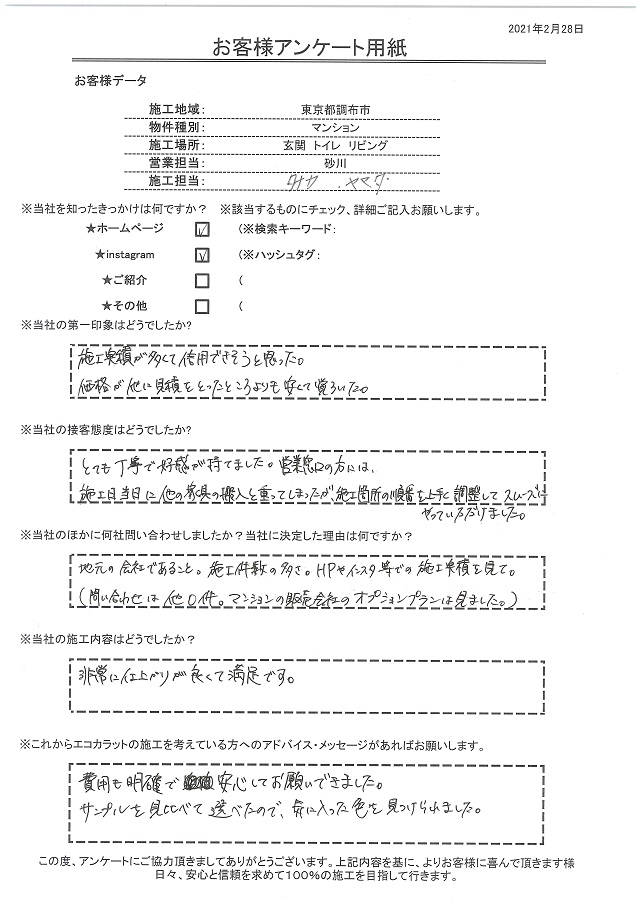 2021年2月28日
お客様アンケート用紙
お客様データ
施工地域： 東京都調布市
物件種別： マンション
施工場所： 玄関 トイレ リビング
営業担当： 砂川
施工担当： タナカ ヤマダ
※当社を知ったきっかけは何ですか？ ※該当するものにチェック、詳細ご記入お願いします。
★ホームページ ☑ （※検索キーワード：
★instagram ☑ （※ハッシュタグ：
★ご紹介 □ （
★その他 □ （
※当社の第一印象はどうでしたか？
施工実積が多くて信用できそうと思った。
価格が他に見積をとったところよりも安くて驚ろいた。
※当社の接客態度はどうでしたか？
とても丁寧で好感が持てました。営業窓口の方には、
施工日当日に他の家具の搬入と重ってしまったが、施工箇所の順番を上手く調整してスムーズに
やっていただけました。
※当社のほかに何社問い合わせしましたか？当社に決定した理由は何ですか？
地元の会社であること。施工件数の多さ。HPやインスタ等での施工実積を見て。
（問い合わせは他0件。マンションの販売会社のオプションプランは見ました。）
※当社の施工内容はどうでしたか？
非常に仕上がりが良くて満足です。
※これからエコカラットの施工を考えている方へのアドバイス・メッセージがあればお願いします。
費用も明確で安心してお願いできました。
サンプルを見比べて選べたので、気に入った色を見つけられました。
この度、アンケートにご協力頂きましてありがとうございます。上記内容を基に、よりお客様に喜んで頂きます様
日々、安心と信頼を求めて100％の施工を目指して行きます。